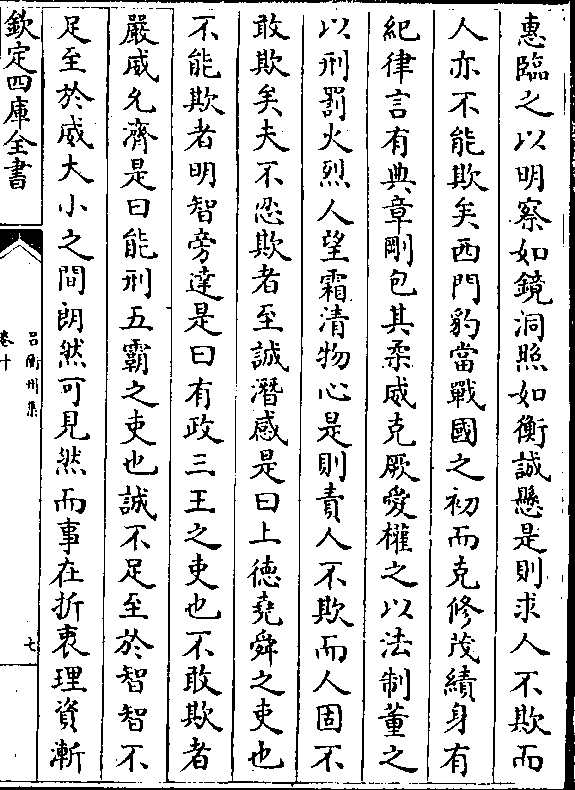 惠臨之以明察如鏡洞照如衡誠懸是則求人不欺而
人亦不能欺矣西門豹當戰國之初而克修茂績身有
紀律言有典章剛包其柔威克厥愛權之以法制董之
以刑罰火烈人望霜清物心是則責人不欺而人固不
敢欺矣夫不忍欺者至誠潛感是曰上德堯舜之吏也
不能欺者明智旁達是曰有政三王之吏也不敢欺者
嚴威允濟是曰能刑五霸之吏也誠不足至於智智不
足至於威大小之間朗然可見然而事在折衷理資漸
欽定四庫全書
呂衡州集
卷十
七